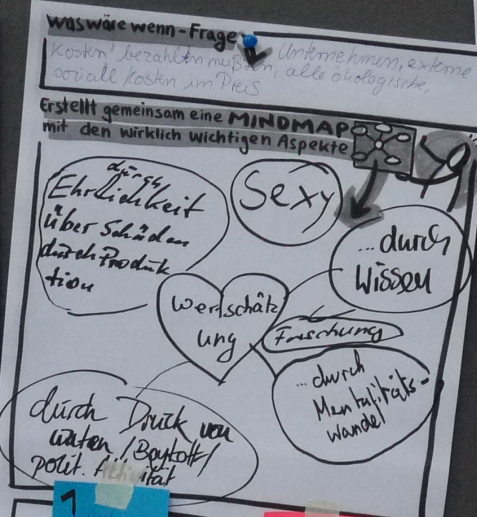 waswäre wenn-Frage
Unternehmen, externe
Kosten bezahlten müßten, alle ökologische,
soziale Kosten im Preis
Erstellt gemeinsam eine MINDMAP
mit den wirklich wichtigen Aspekte
durch
Ehrlichkeit
über Schäden
durch Produk
tion
Sexy
...durch
Wissen
Wertschätz
ung
Forschung
...durch
Mentalitäts-
wandel
durch Druck von
unten / Boykott /
polit. Aktivität
1